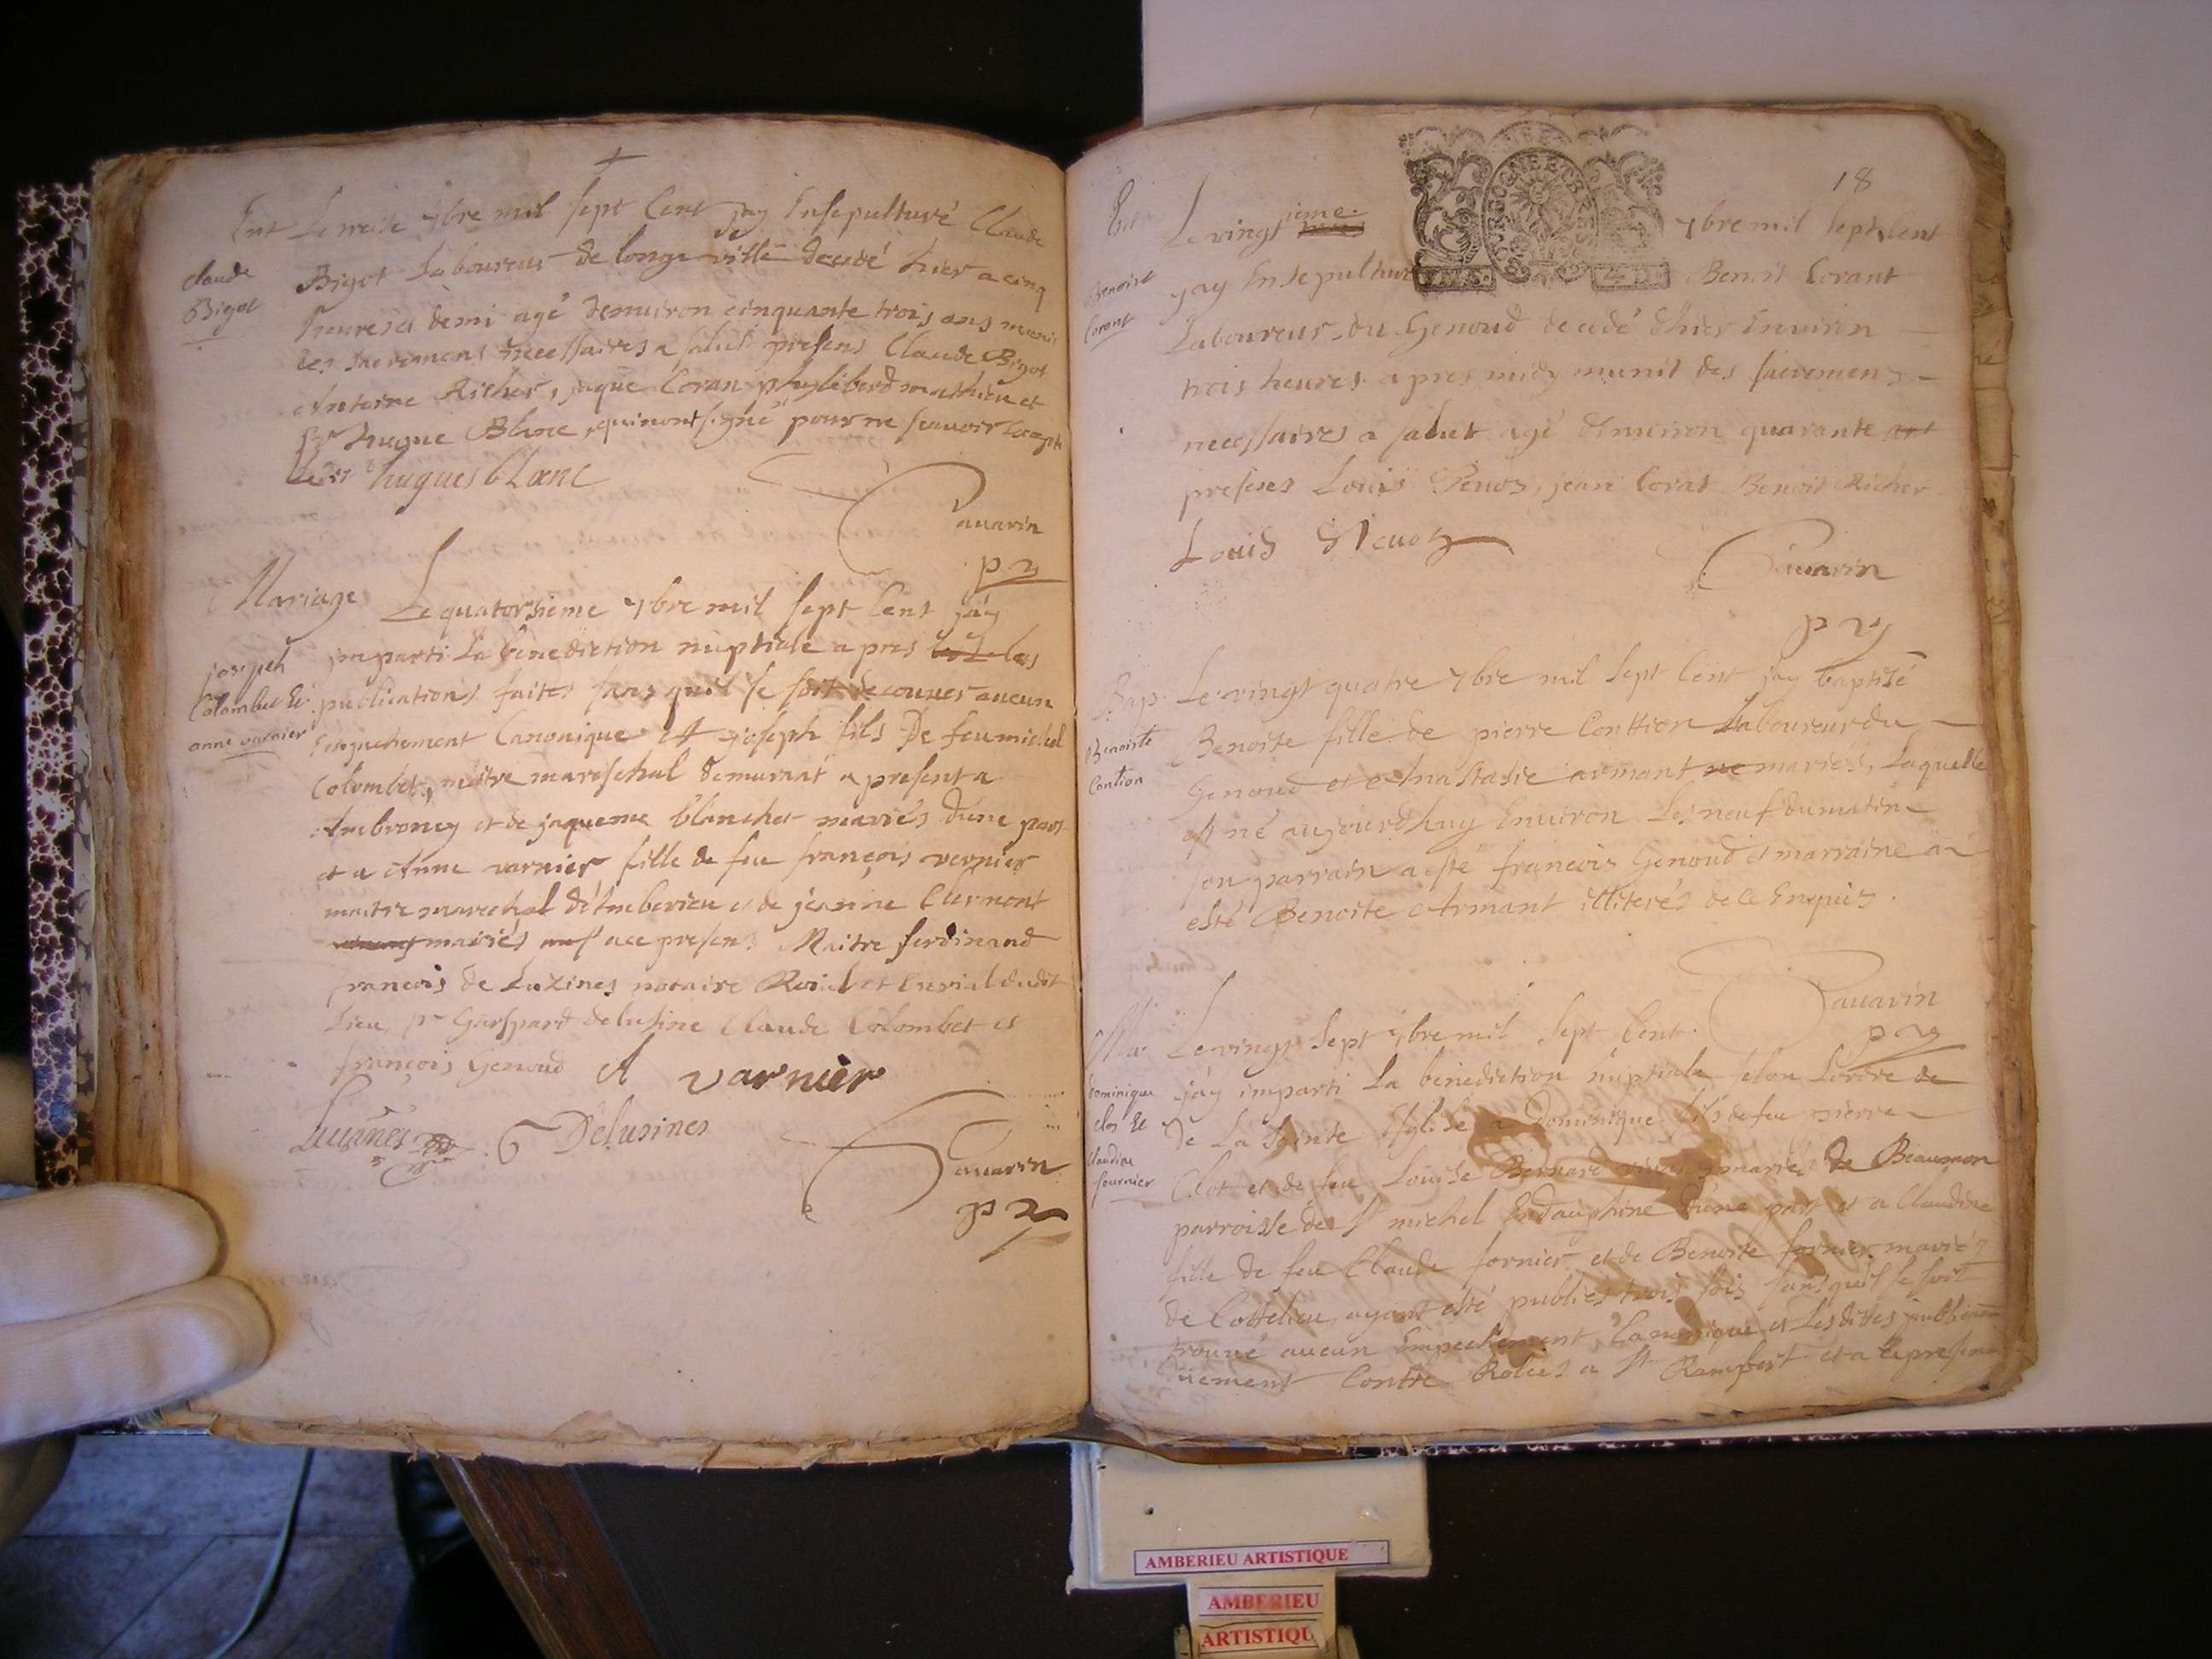 Ent Le treise 7bre mil sept Cent jay Ensepulturé Claude
claude Bigot
Bigot Laboureur de longeville decedé hier a cinq
heures et demi agé denuiron cinquante trois ans munis
des sacremens necessaires a salut presens Claude Bigot
Antoine Richer, jaque Coran phyliberd mathieu et
Sr hugue Blanc, qui nont signé pour ne scauoir excepté
ledit hugues blanc
Sauarin
p r
Mariage
joseph Colombet Et anne varnier
Le quatorsieme 7bre mil sept Cent jay
imparti La benediction nuptiale a pres les
publications faites sans quil se soit decouuer aucun
Empechement Canonique A joseph fils De feu michel
Colombet, maitre mareschal demurant a present a
Ambroney et de jaqueme blanchet mariés dune part
et a Anne varnier fille de feu françois vernier
maitre marechal d'Amberieu et de jeanne Clermont
mariés a ce presens Maitre ferdinand
francois de Luxines notaire Roial et Curial dudit
Lieu, Sr Gaspard delusine Claude Colombet et
françois Genoud A varnier
Luisines G Delusines
Sauarin
p r
18
Ent
Benoist Corant
Le vingtieme 7bre mil sept Cent
jay Ensepulturé Benoit Corant
Laboureur du Genoud decedé d'hier Enuiron
trois heures apres midy munit des sacremens
necessaires a salut agé denuiron quarante
presens Louis Peuoz, jean Corat Benoit Richer
Louis Peuoz
Sauarin
p r
Bap.
Benoiste Contion
Le vingt quatre 7bre mil sept Cent jay baptisé
Benoite fille de pierre Conttion Laboureur du
Genoud et Anastasie armant mariés, Laquelle
est né aujourdhuy Enuiron Les neuf du matin
son parrain a esté francois Genoud et marraine a
esté Benoite Armant illiterés de ce Enquis.
Sauarin
p r
Ma.
Dominique clos Et Claudine fournier
Le vingt sept 7bre mil sept Cent
jay imparti La benediction nuptiale selon Lordre de
de La sainte Eglise a Dominique fils de feu pierre
Clot et de feu Louise Bernard viuans mariés de Beaumon
parroisse de St michel En dauphine dune part et a Claudine
fille de feu Claude fornier et de Benoite fornier mariés
de Cottelieu, ayant esté publiés trois fois sans quil se soit
trouué aucun Empechement Canonique et Les dites
Contre a St Rambert et a ce presens
AMBERIEU ARTISTIQUE
AMBERIEU
ARTISTIQU